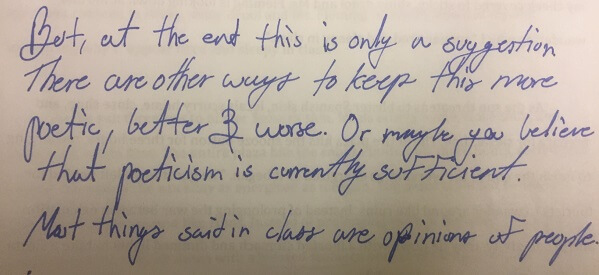 But, at the end this is only a suggestion
There are other ways to keep this more
poetic, better & worse. Or maybe you believe
that poeticism is currently sufficient.
Most things said in class are opinions of people.